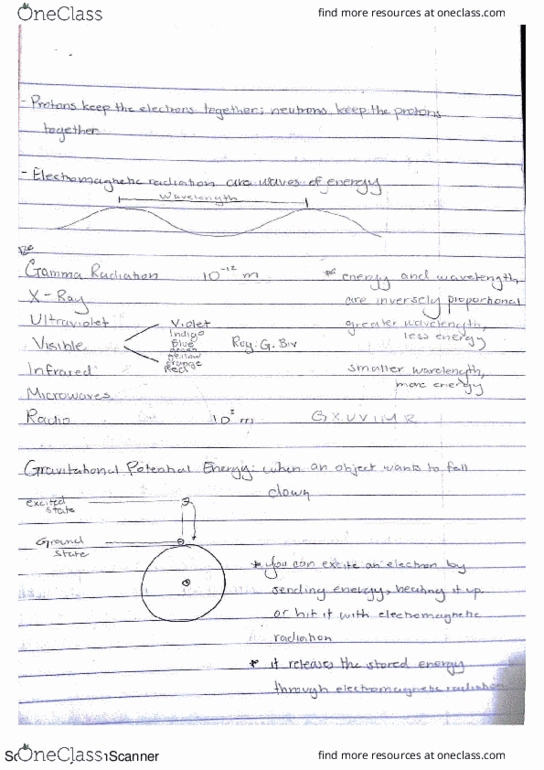 OneClass
find more resources at oneclass.com
- Protons keep the electrons together; neutrons keep the protons
together
- Electromagnetic radiation are waves of energy
Wavelength
Gamma Radiation 10⁻¹² m * energy and wavelength,
X-Ray are inversely proportional
Ultraviolet Violet greater wavelength,
Indigo less energy
Blue
Visible Green Roy. G. Biv
Yellow
Orange
Red
Infrared smaller wavelength,
Microwaves more energy
Radio G X U V I M R
Gravitational Potential Energy: when an object wants to fall
down
excited
state
Ground
state
* you can excite an electron by
sending energy, heating it up
or hit it with electromagnetic
radiation
* it releases the stored energy
through electromagnetic radiation
OneClass
Scanner
find more resources at oneclass.com